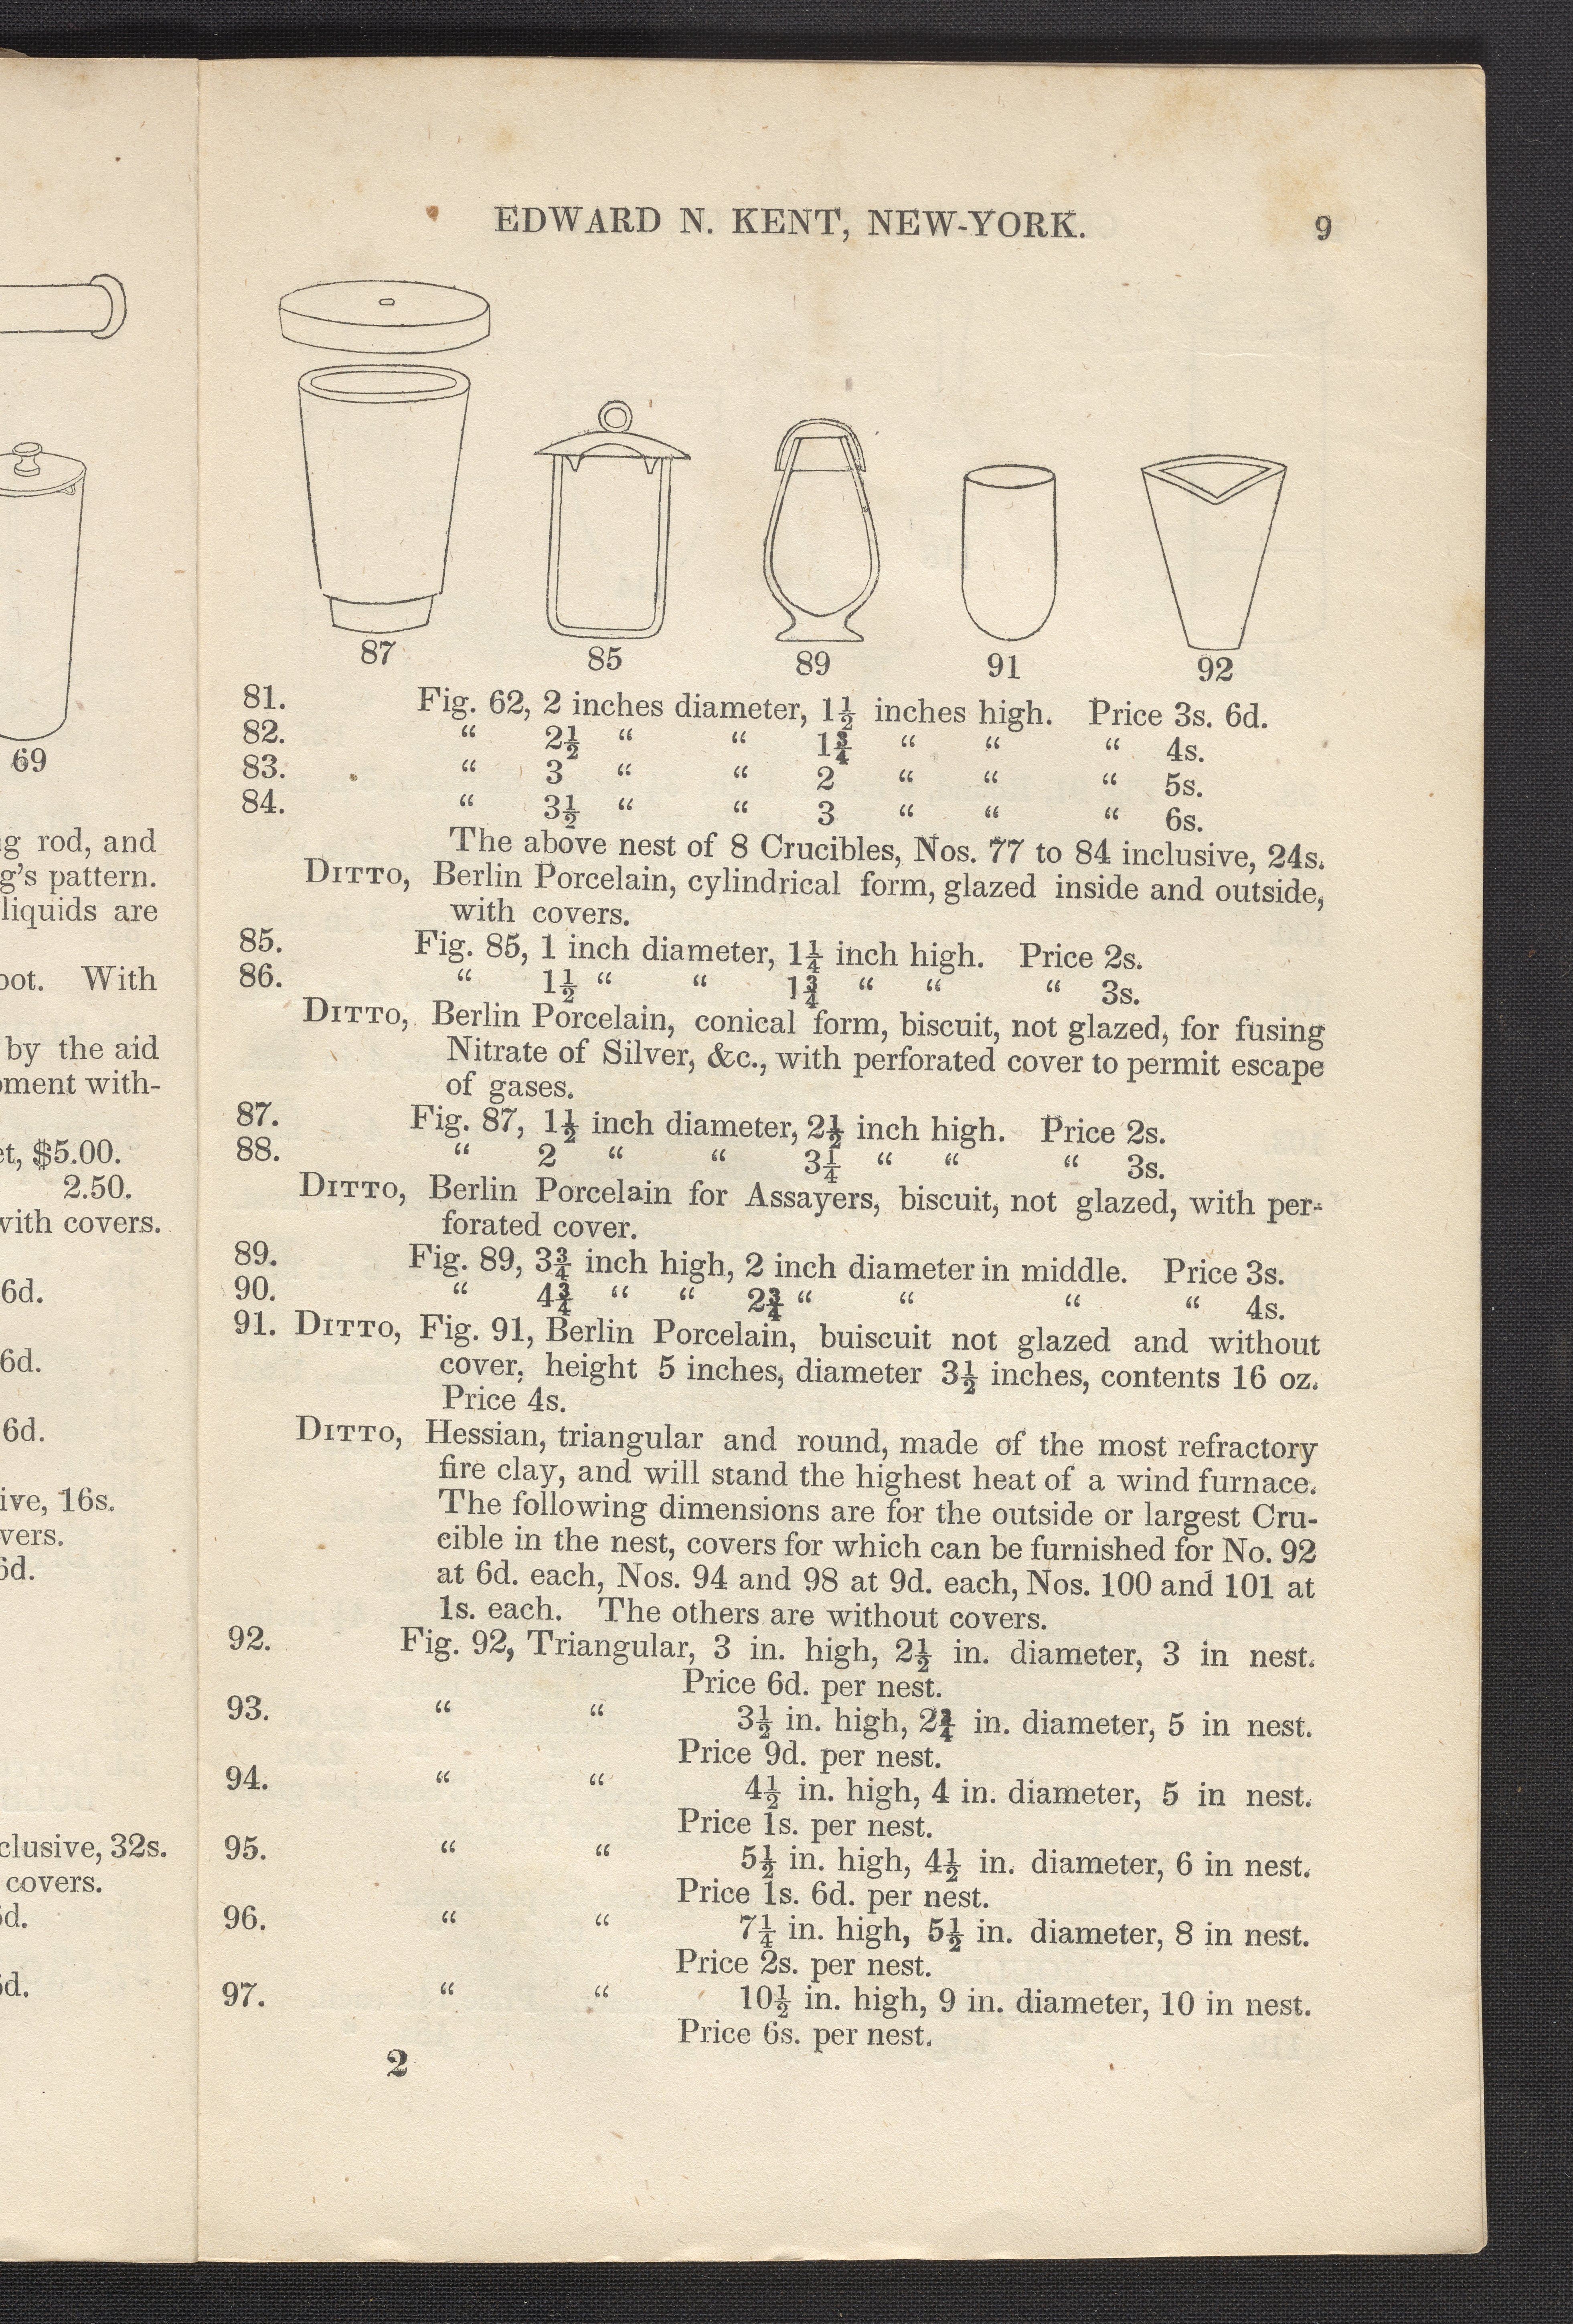 69
g rod, and
g's pattern.
liquids are
oot. With
by the aid
oment with-
et, $5.00.
2.50.
with covers.
6d.
6d.
6d.
ive, 16s.
vers.
6d.
clusive, 32s.
covers.
6d.
6d.
EDWARD N. KENT, NEW-YORK. 9
87 85 89 91 92
81. Fig. 62, 2 inches diameter, 1½ inches high. Price 3s. 6d.
82. “ 2½ “ “ 1¾ “ “ “ 4s.
83. “ 3 “ “ 2 “ “ “ 5s.
84. “ 3½ “ “ 3 “ “ “ 6s.
The above nest of 8 Crucibles, Nos. 77 to 84 inclusive, 24s.
DITTO, Berlin Porcelain, cylindrical form, glazed inside and outside,
with covers.
85. Fig. 85, 1 inch diameter, 1¼ inch high. Price 2s.
86. “ 1½ “ “ 1¾ “ “ “ 3s.
DITTO, Berlin Porcelain, conical form, biscuit, not glazed, for fusing
Nitrate of Silver, &c., with perforated cover to permit escape
of gases.
87. Fig. 87, 1½ inch diameter, 2½ inch high. Price 2s.
88. “ 2 “ “ 3¼ “ “ “ 3s.
DITTO, Berlin Porcelain for Assayers, biscuit, not glazed, with per-
forated cover.
89. Fig. 89, 3¾ inch high, 2 inch diameter in middle. Price 3s.
90. “ 4¾ “ “ 2¾ “ “ “ “ 4s.
91. DITTO, Fig. 91, Berlin Porcelain, buiscuit not glazed and without
cover, height 5 inches, diameter 3½ inches, contents 16 oz.
Price 4s.
DITTO, Hessian, triangular and round, made of the most refractory
fire clay, and will stand the highest heat of a wind furnace.
The following dimensions are for the outside or largest Cru-
cible in the nest, covers for which can be furnished for No. 92
at 6d. each, Nos. 94 and 98 at 9d. each, Nos. 100 and 101 at
1s. each. The others are without covers.
92. Fig. 92, Triangular, 3 in. high, 2½ in. diameter, 3 in nest.
Price 6d. per nest.
93. “ “ 3½ in. high, 2¾ in. diameter, 5 in nest.
Price 9d. per nest.
94. “ “ 4½ in. high, 4 in. diameter, 5 in nest.
Price 1s. per nest.
95. “ “ 5½ in. high, 4½ in. diameter, 6 in nest.
Price 1s. 6d. per nest.
96. “ “ 7¼ in. high, 5½ in. diameter, 8 in nest.
Price 2s. per nest.
97. “ “ 10½ in. high, 9 in. diameter, 10 in nest.
Price 6s. per nest.
2